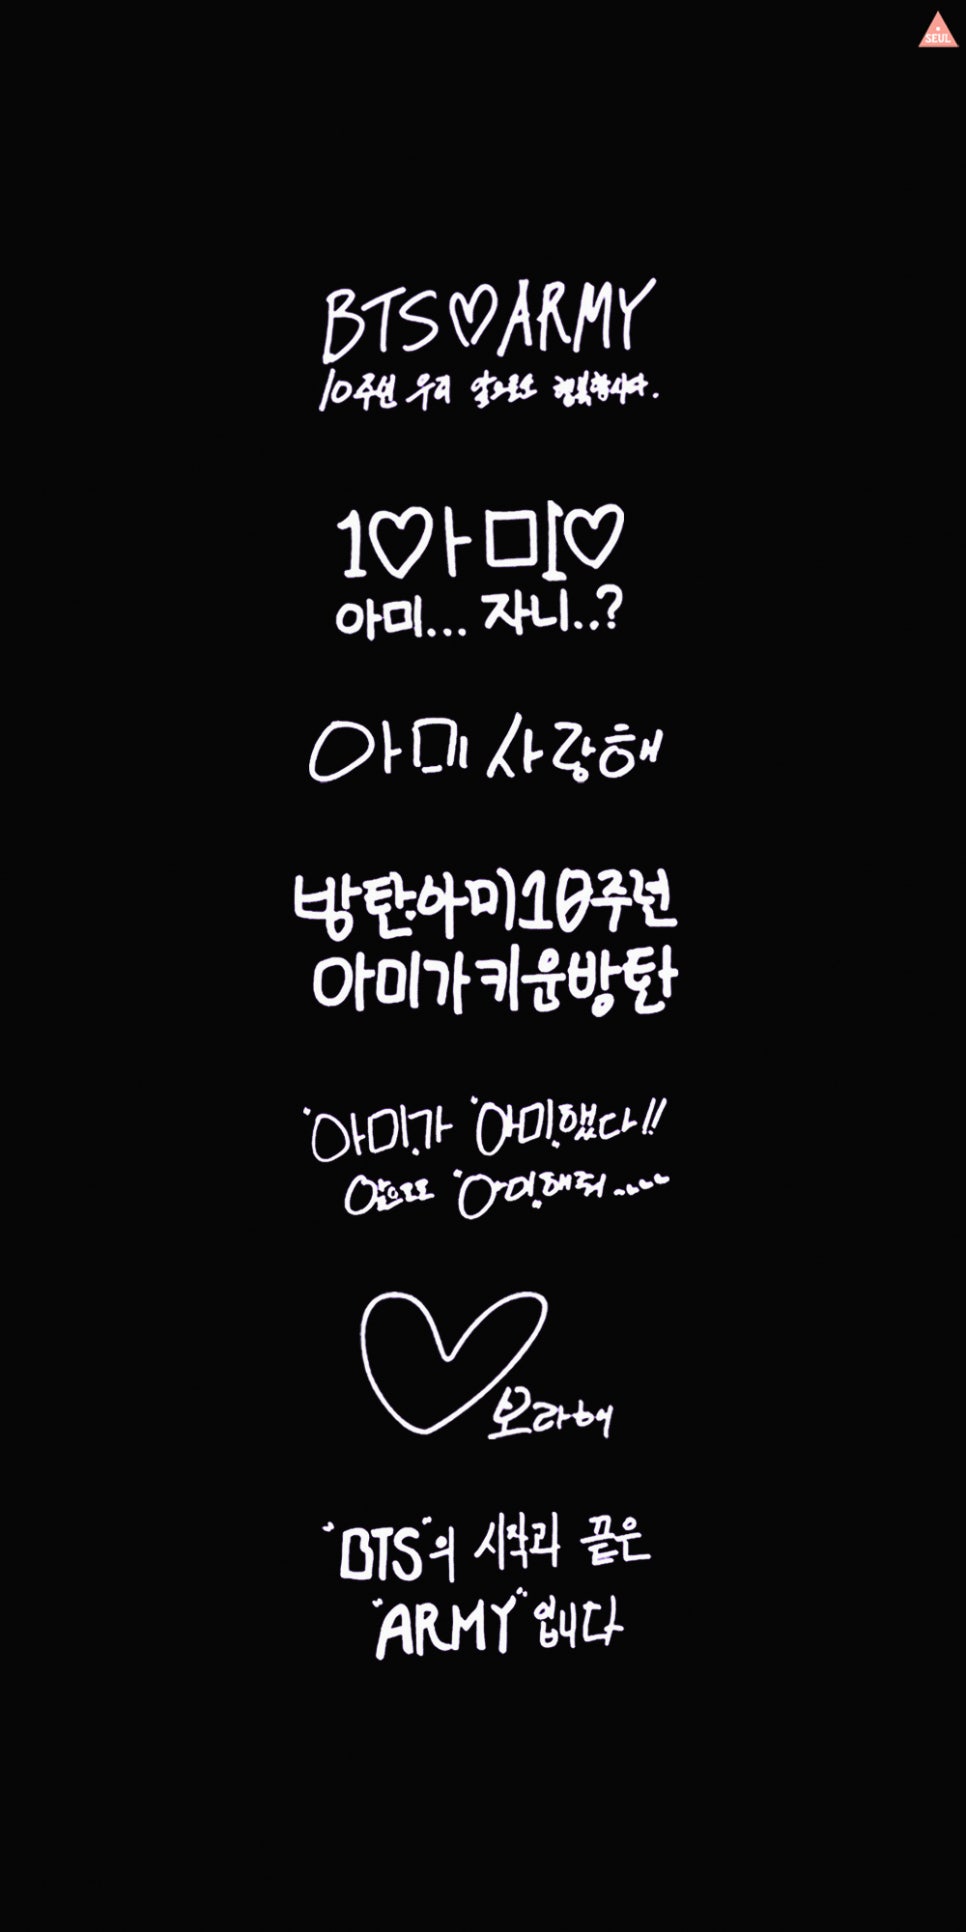 SEUL
BTS♡ARMY
10주년 우리 앞으로도 행복합시다.
1♡아미♡
아미... 자니..?
아미 사랑해
방탄아미10주년
아미가키운방탄
"아미"가 "아미"했다!!
앞으로도 "아미"해줘~~~~
보라해
"BTS"의 시작과 끝은
"ARMY"입니다